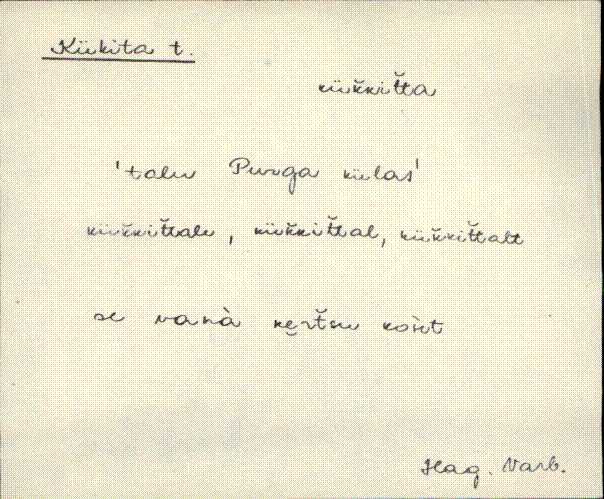 Kükita t.
kük̆kit̆ta
'talu Purga külas'
kük̆kit̆tale, kük̆kit̆tal, kük̆kit̆talt
se vanà kẹrt̆su koht
Hag. Varb.